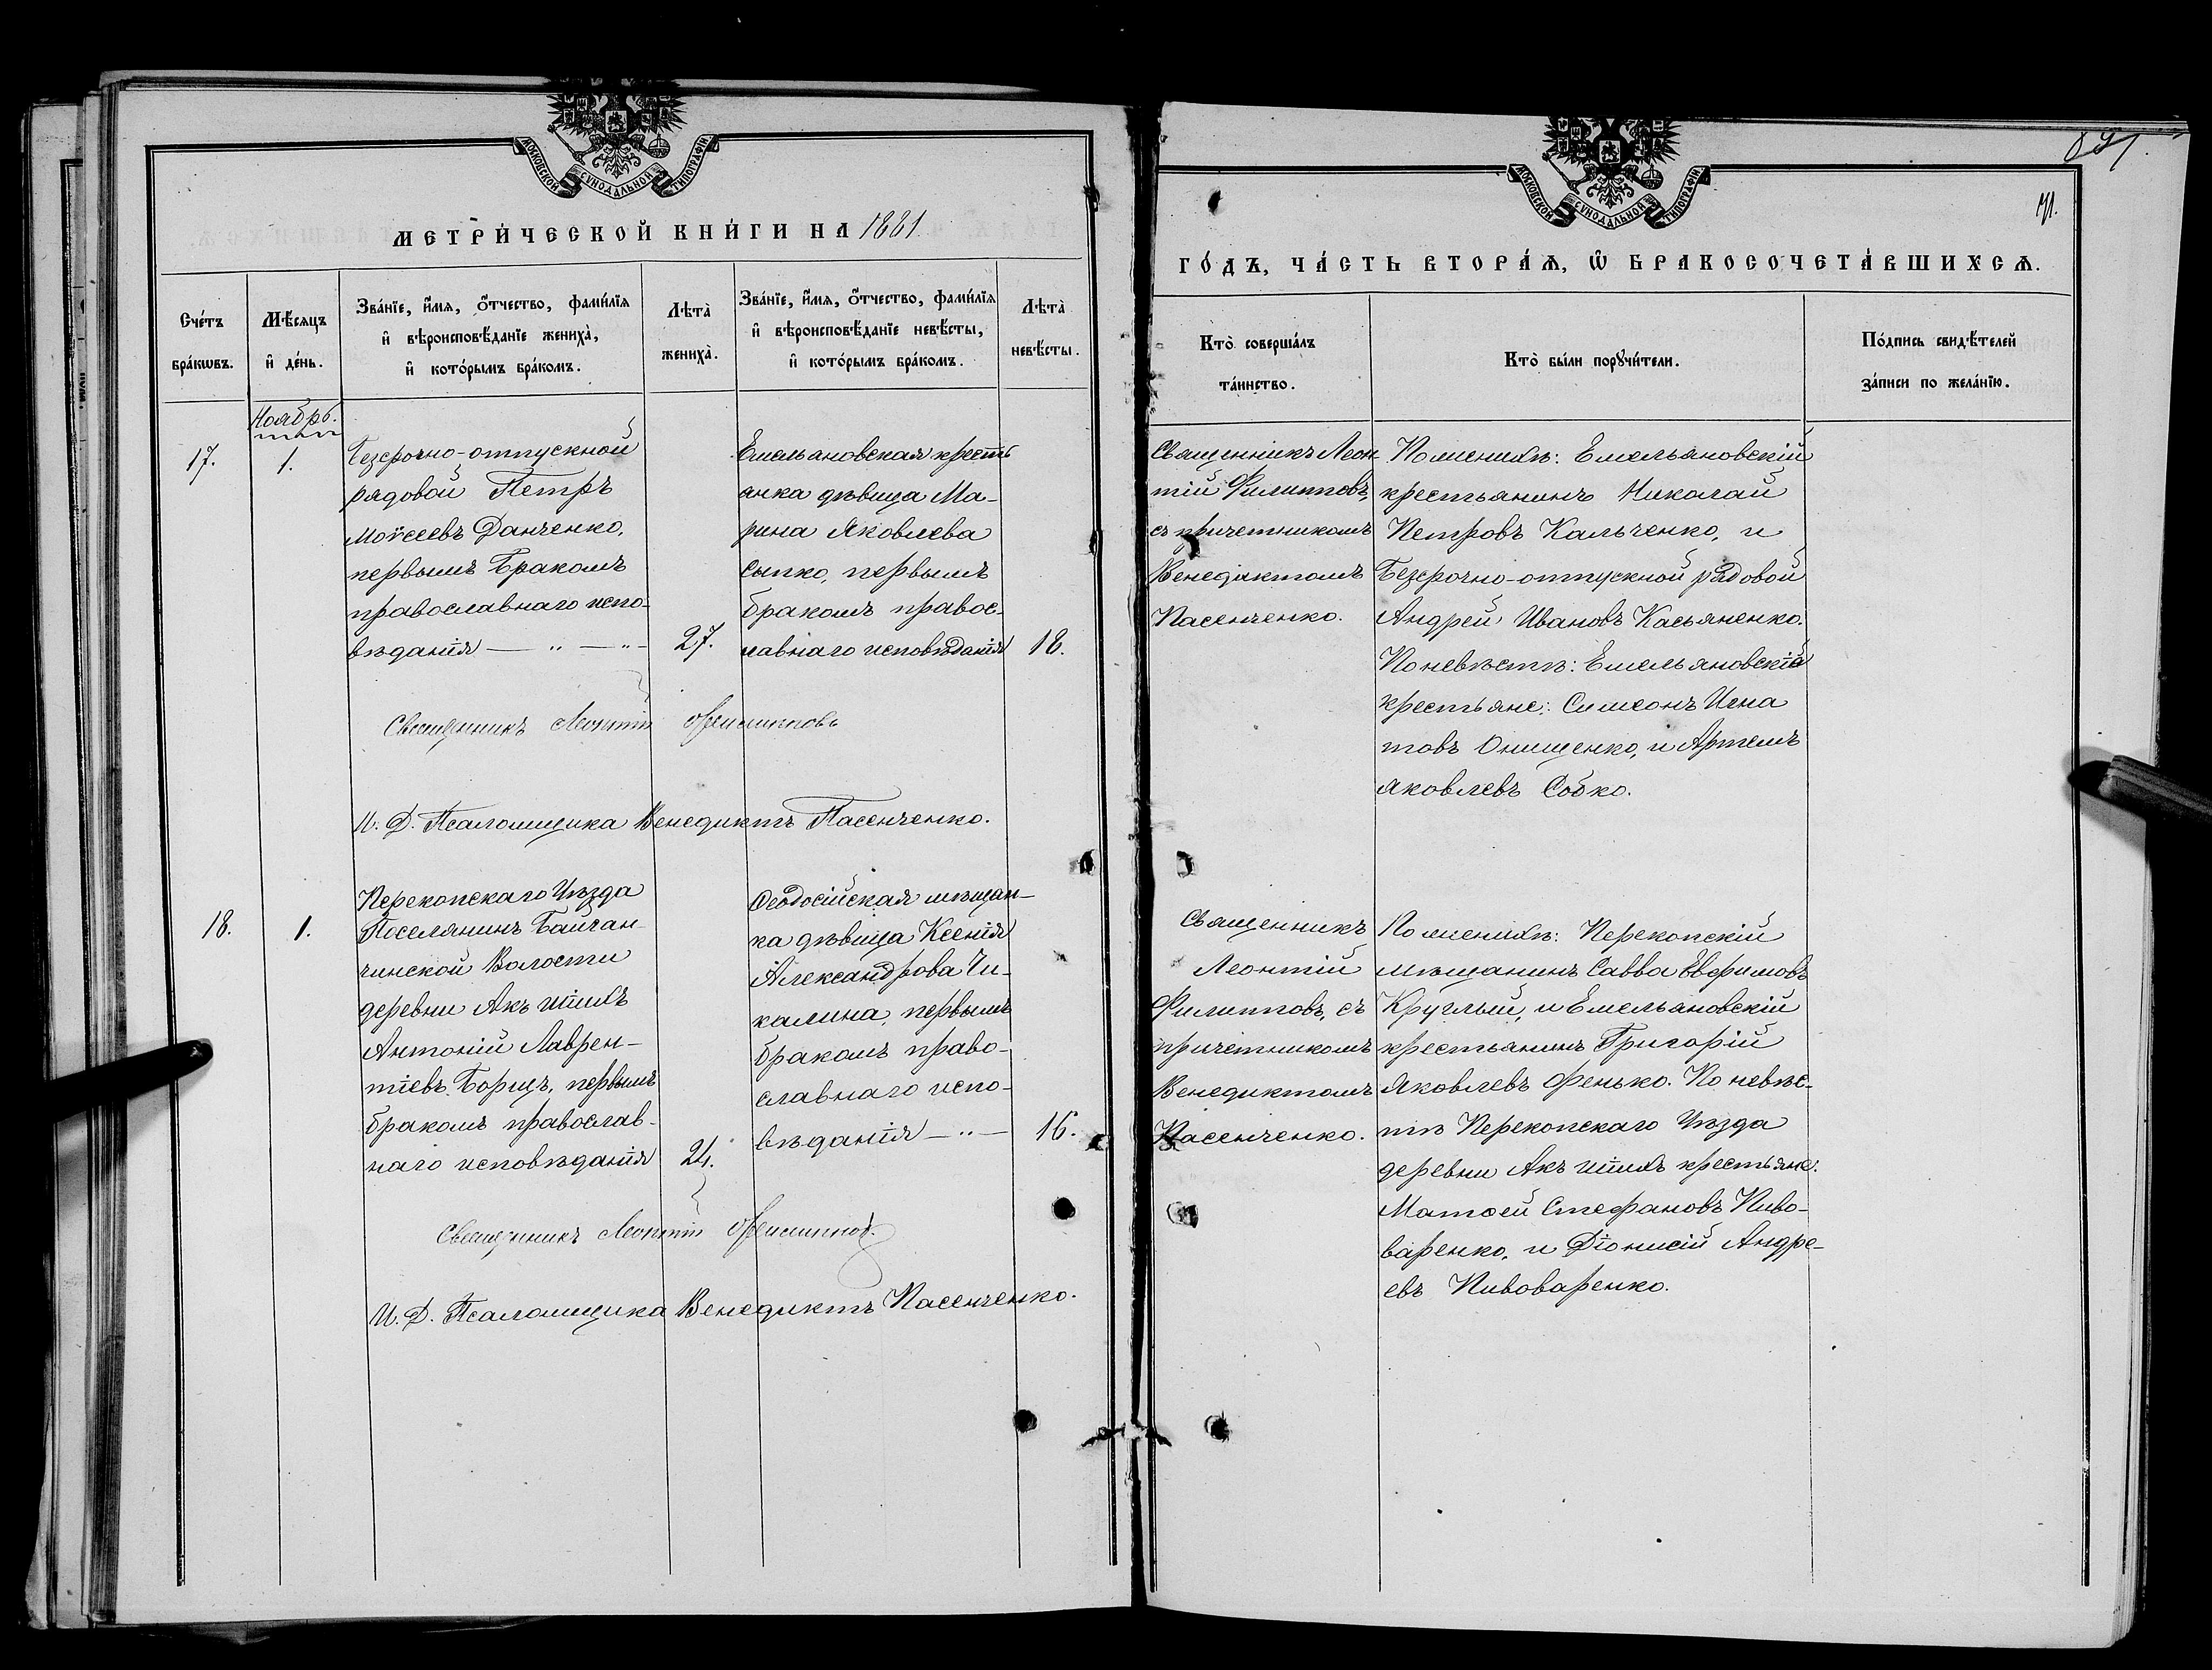 МОСКОВСКОЙ СѴНОДАЛЬНОЙ ТИПОГРАФІИ.
МЕТРИ́ЧЕСКОЙ КНИ́ГИ НА 1881
Сче́тъ
бра́кѡвъ.
Мѣ́сяцъ
и҆ де́нь.
Зва́нїе, и҆́мя, ѻ҆́тчество, фами́лїя
и҆ вѣроисповѣ́данїе жениха̀,
и҆ кото́рымъ бра́комъ.
Лѣта̀
жениха̀.
Зва́нїе, и҆́мя, ѻ҆́тчество, фами́лїя
и҆ вѣроисповѣ́данїе невѣ́сты,
и҆ кото́рымъ бра́комъ.
Лѣта̀
невѣ́сты.
Ноябрь.
17.
1.
Безсрочно-отпускной
рядовой Петръ
Моѵсеевъ Данченко,
первымъ Бракомъ
православнаго испо-
вѣданія — „ — „ -
27.
Емельановская кресть
анка дѣвица Ма-
рина Яковлева
Сыпко, первымъ
бракомъ правос-
лавнаго исповѣданія
18.
Священникъ Леонтій Филипповъ
И. Д. Псаломщика Венедиктъ Пасенченко.
18.
1.
Перекопскаго Уѣзда
Поселянинъ Байчан-
чинской Волости
деревни Акъ шихъ
Антоній Лаврен-
тіевъ Борщъ, первымъ
бракомъ православ-
наго исповѣданія
24.
Ѳеодосійская мѣщан-
ка дѣвица Ксенія
Александрова Чи-
калина, первымъ
бракомъ право-
славнаго испо-
вѣданія — „ —
16.
Священникъ Леонтій Филиппов.
И. Д. Псаломщика Венедиктъ Пасенченко.
МОСКОВСКОЙ СѴНОДАЛЬНОЙ ТИПОГРАФІИ.
ГО́ДЪ, ЧА́СТЬ ВТОРА́Ѧ, Ѽ БРАКОСОЧЕТА́ВШИХСѦ.
Кто̀ соверша́лъ
та́инство.
Кто̀ бы́ли порꙋчи́тели.
По́дпись свидѣ́телей
за́писи по жела́нїю.
Священникъ Леон-
тій Филипповъ,
съ причетникомъ
Венедиктомъ
Пасенченко.
По женихѣ: Емельяновскій
крестьянинъ Николай
Петровъ Кальченко, и
Безсрочно-отпускной рядовой
Андрей Ивановъ Касьяненко.
По невѣстѣ: Емельяновскіе
крестьяне: Симеонъ Игна
товъ Онищенко, и Артемъ
Яковлевъ Собко.
Священникъ
Леонтій
Филипповъ, съ
причетникомъ
Венедиктомъ
Пасенченко.
По женихѣ: Перекопскій
мѣщанинъ Савва Евфимовъ
Круглый, и Емельяновскій
крестьянинъ Григорій
Яковлевъ Фенько. По невѣс-
тѣ Перекопскаго Уѣзда
деревни Акъ шихъ крестьяне:
Матѳей Стефановъ Пиво-
варенко, и Діонисій Андре-
евъ Пивоваренко.